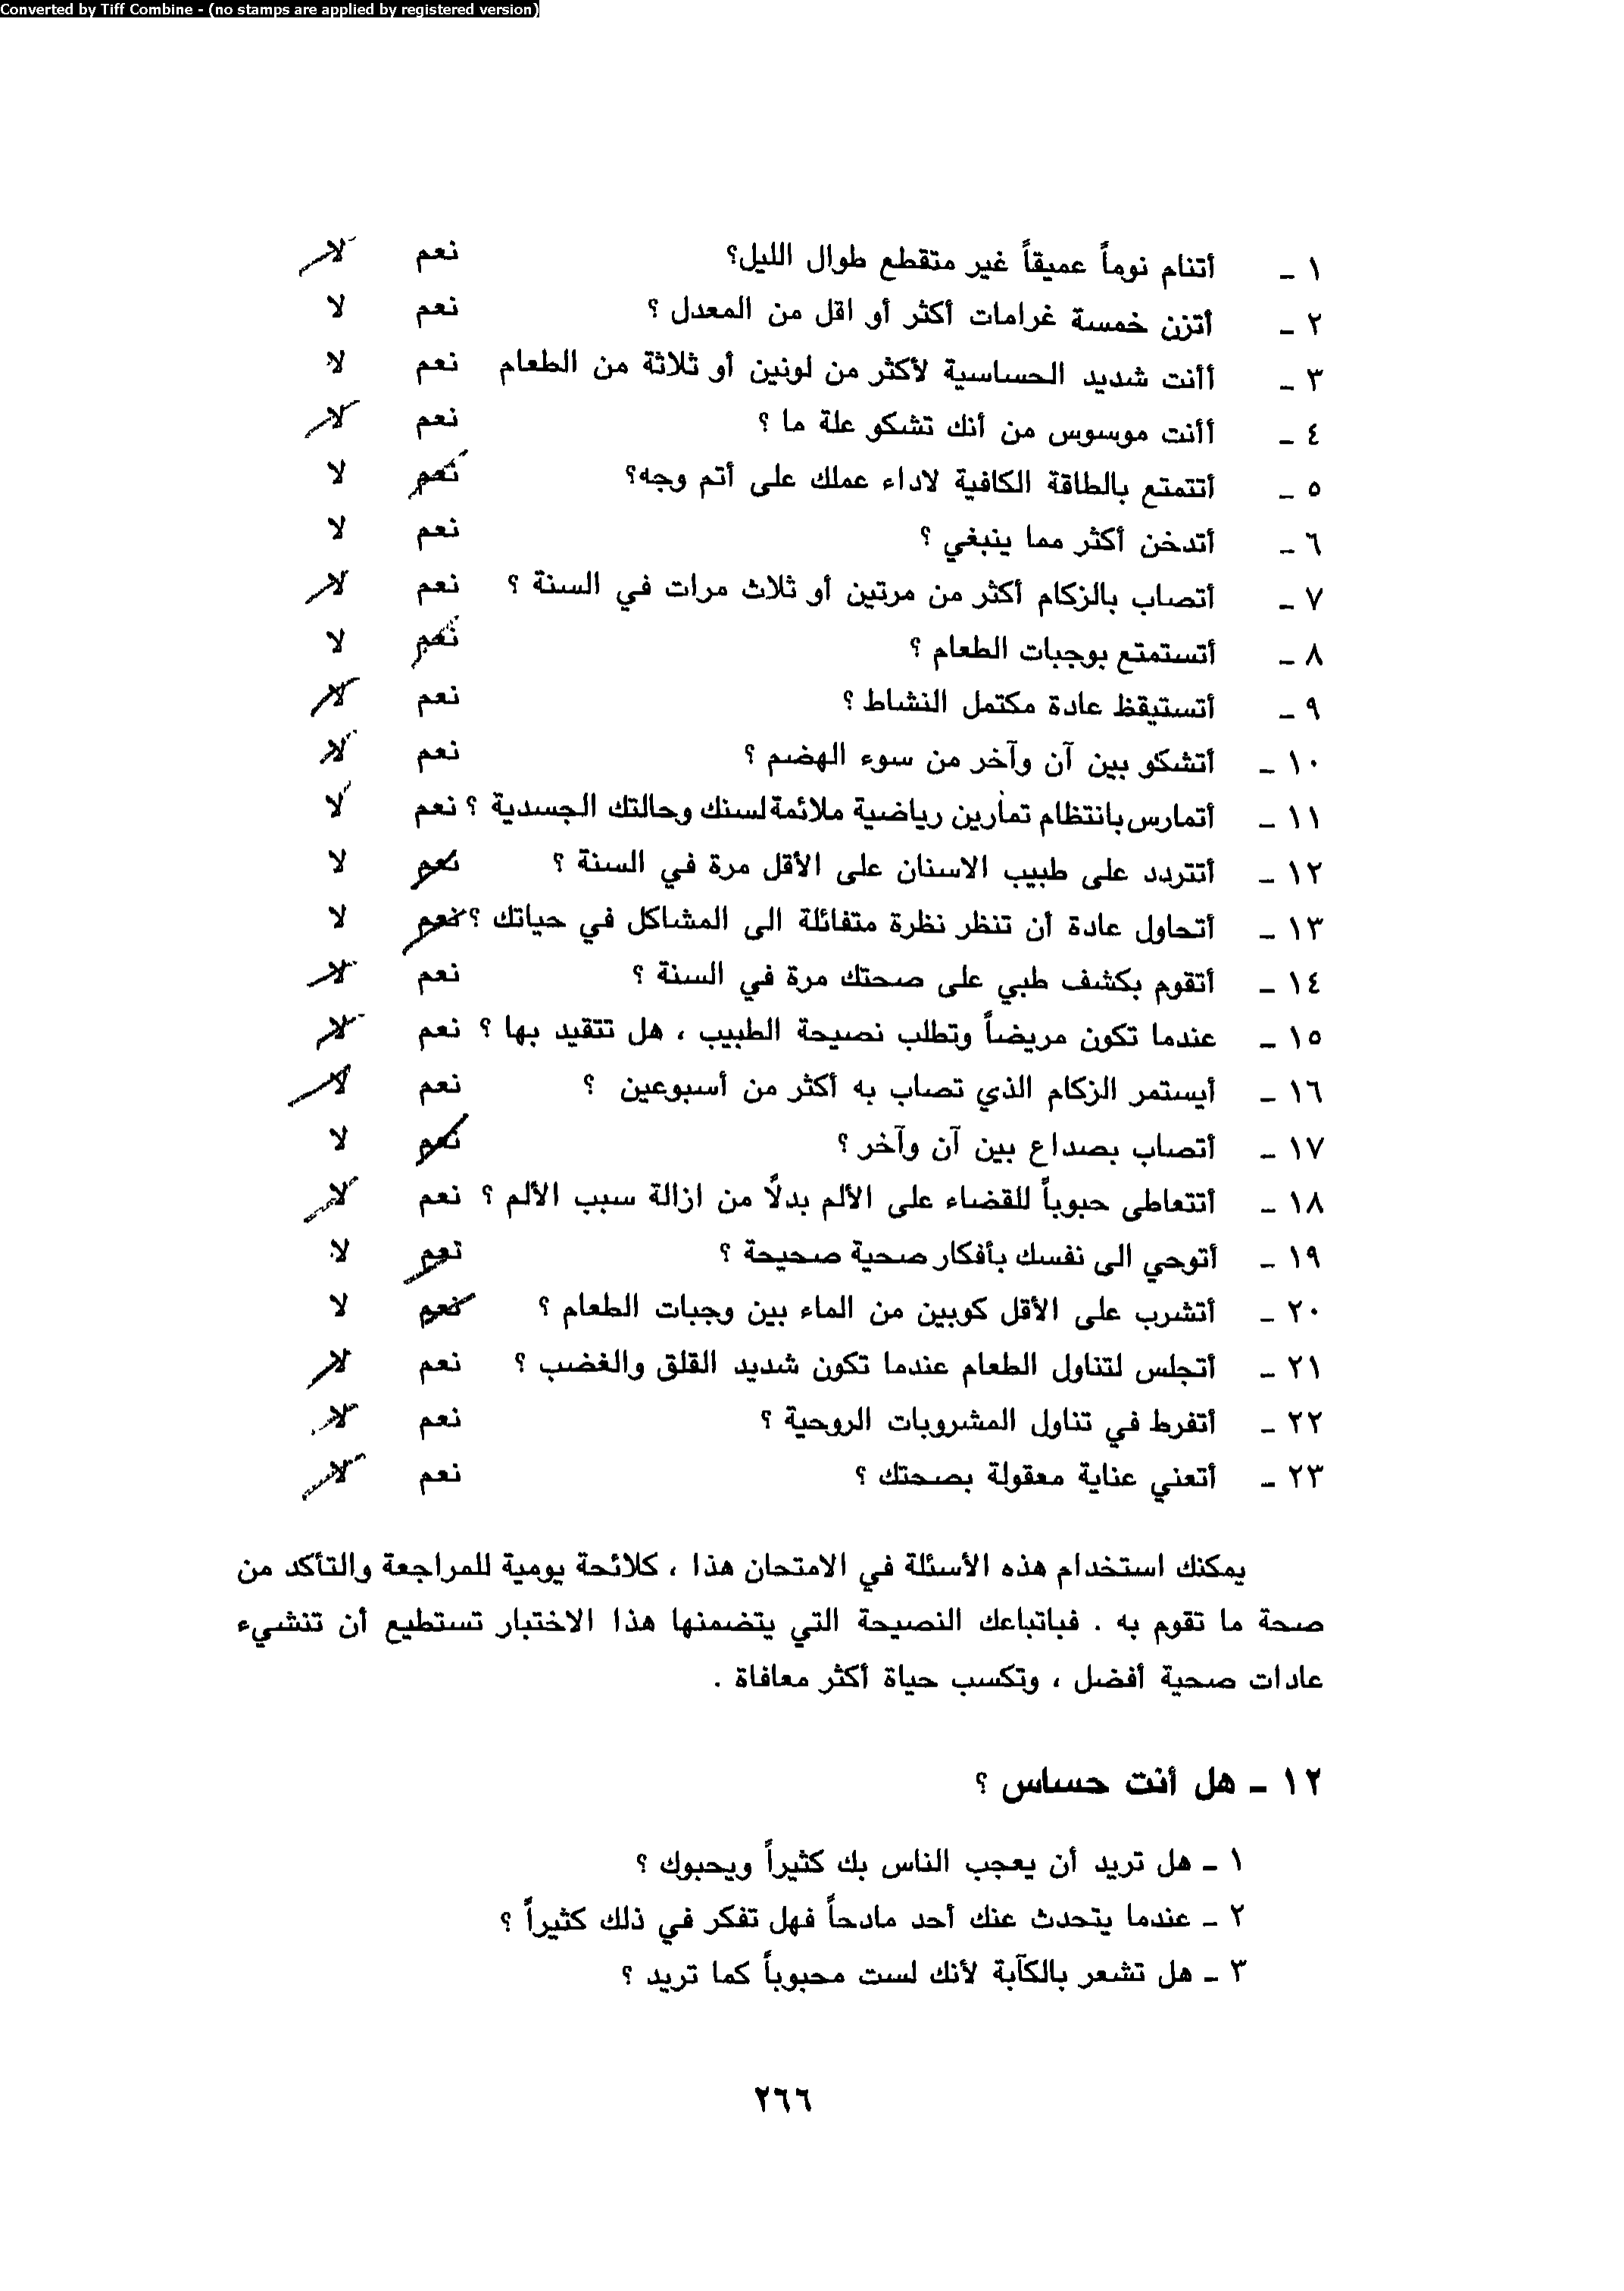 Converted by Tiff Combine - (no stamps are applied by registered version)
١ ـ أتنام نوماً عميقاً غير متقطع طوال الليل؟ نعم لا
٢ ـ أتزن خمسة غرامات أكثر أو اقل من المعدل ؟ نعم لا
٣ ـ أأنت شديد الحساسية لأكثر من لونين أو ثلاثة من الطعام نعم لا
٤ ـ أأنت موسوس من أنك تشكو علة ما ؟ نعم لا
٥ ـ أتتمتع بالطاقة الكافية لاداء عملك على أتم وجه؟ نعم لا
٦ ـ أتدخن أكثر مما ينبغي ؟ نعم لا
٧ ـ أتصاب بالزكام أكثر من مرتين أو ثلاث مرات في السنة ؟ نعم لا
٨ ـ أتستمتع بوجبات الطعام ؟ نعم لا
٩ ـ أتستيقظ عادة مكتمل النشاط ؟ نعم لا
١٠ ـ أتشكو بين آن وآخر من سوء الهضم ؟ نعم لا
١١ ـ أتمارس بانتظام تمارين رياضية ملائمة لسنك وحالتك الجسدية ؟ نعم لا
١٢ ـ أتتردد على طبيب الاسنان على الأقل مرة في السنة ؟ نعم لا
١٣ ـ أتحاول عادة أن تنظر نظرة متفائلة الى المشاكل في حياتك ؟ نعم لا
١٤ ـ أتقوم بكشف طبي على صحتك مرة في السنة ؟ نعم لا
١٥ ـ عندما تكون مريضاً وتطلب نصيحة الطبيب ، هل تتقيد بها ؟ نعم لا
١٦ ـ أيستمر الزكام الذي تصاب به أكثر من أسبوعين ؟ نعم لا
١٧ ـ أتصاب بصداع بين آن وآخر ؟ نعم لا
١٨ ـ أتتعاطى حبوباً للقضاء على الألم بدلًا من ازالة سبب الألم ؟ نعم لا
١٩ ـ أتوحي الى نفسك بأفكار صحية صحيحة ؟ نعم لا
٢٠ ـ أتشرب على الأقل كوبين من الماء بين وجبات الطعام ؟ نعم لا
٢١ ـ أتجلس لتناول الطعام عندما تكون شديد القلق والغضب ؟ نعم لا
٢٢ ـ أتفرط في تناول المشروبات الروحية ؟ نعم لا
٢٣ ـ أتعني عناية معقولة بصحتك ؟ نعم لا
يمكنك استخدام هذه الأسئلة في الامتحان هذا ، كلائحة يومية للمراجعة والتأكد من
صحة ما تقوم به . فباتباعك النصيحة التي يتضمنها هذا الاختبار تستطيع أن تنشيء
عادات صحية أفضل ، وتكسب حياة أكثر معافاة .
١٢ ـ هل أنت حساس ؟
١ ـ هل تريد أن يعجب الناس بك كثيراً ويحبوك ؟
٢ ـ عندما يتحدث عنك أحد مادحاً فهل تفكر في ذلك كثيراً ؟
٣ ـ هل تشعر بالكآبة لأنك لست محبوباً كما تريد ؟
٢٦٦